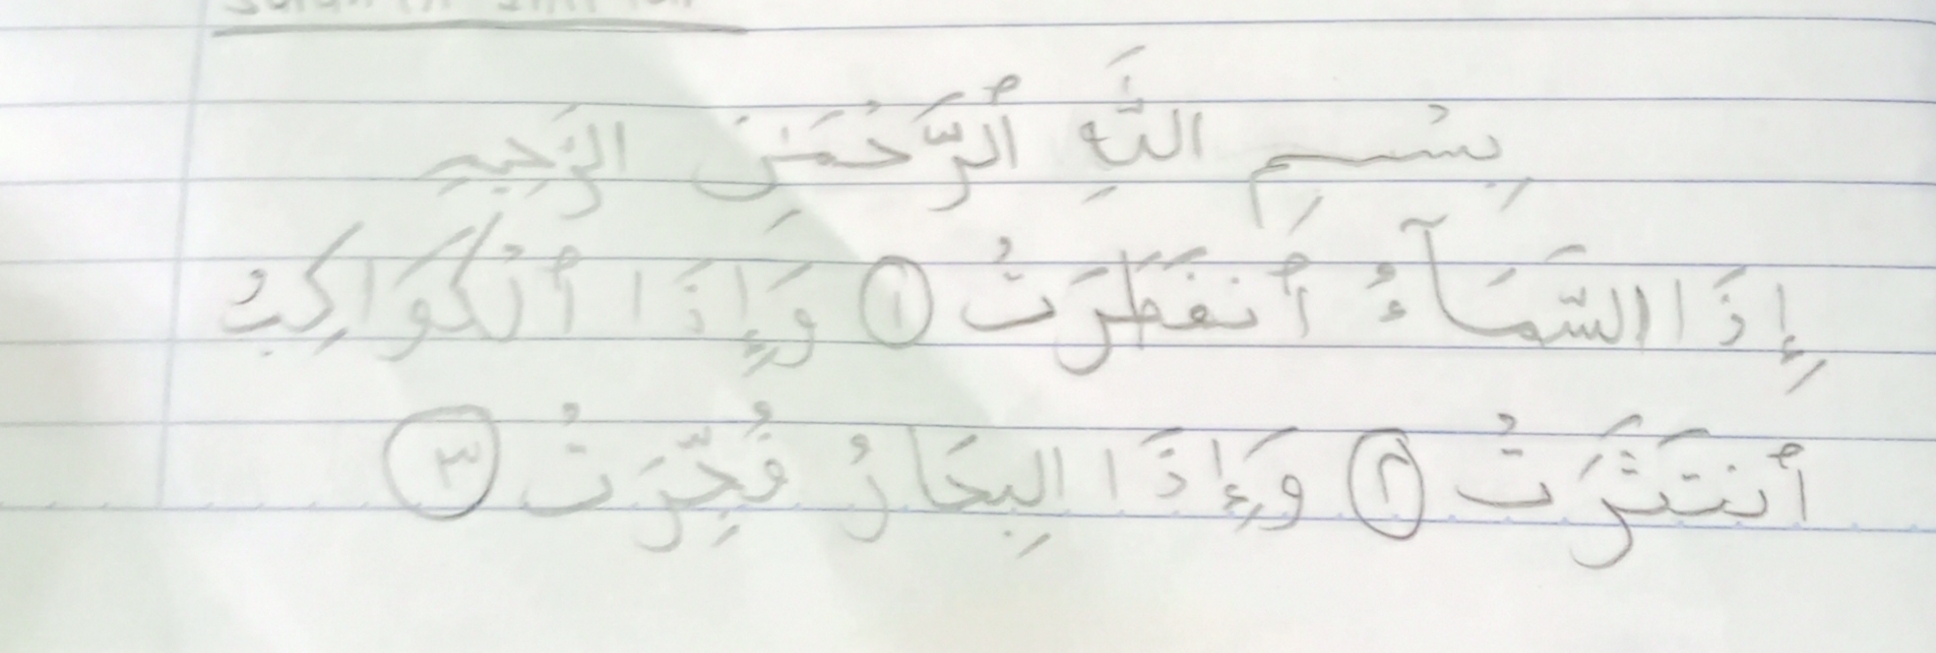 بِسْمِ اللَّهِ ٱلرَّحْمَٰنِ الرَّحِيمِ
إِذَا السَّمَآءُ ٱنفَطَرَتْ ١ وَإِذَا ٱلْكَوَاكِبُ
ٱنتَثَرَتْ ٢ وَإِذَا البِحَارُ فُجِّرَتْ ٣